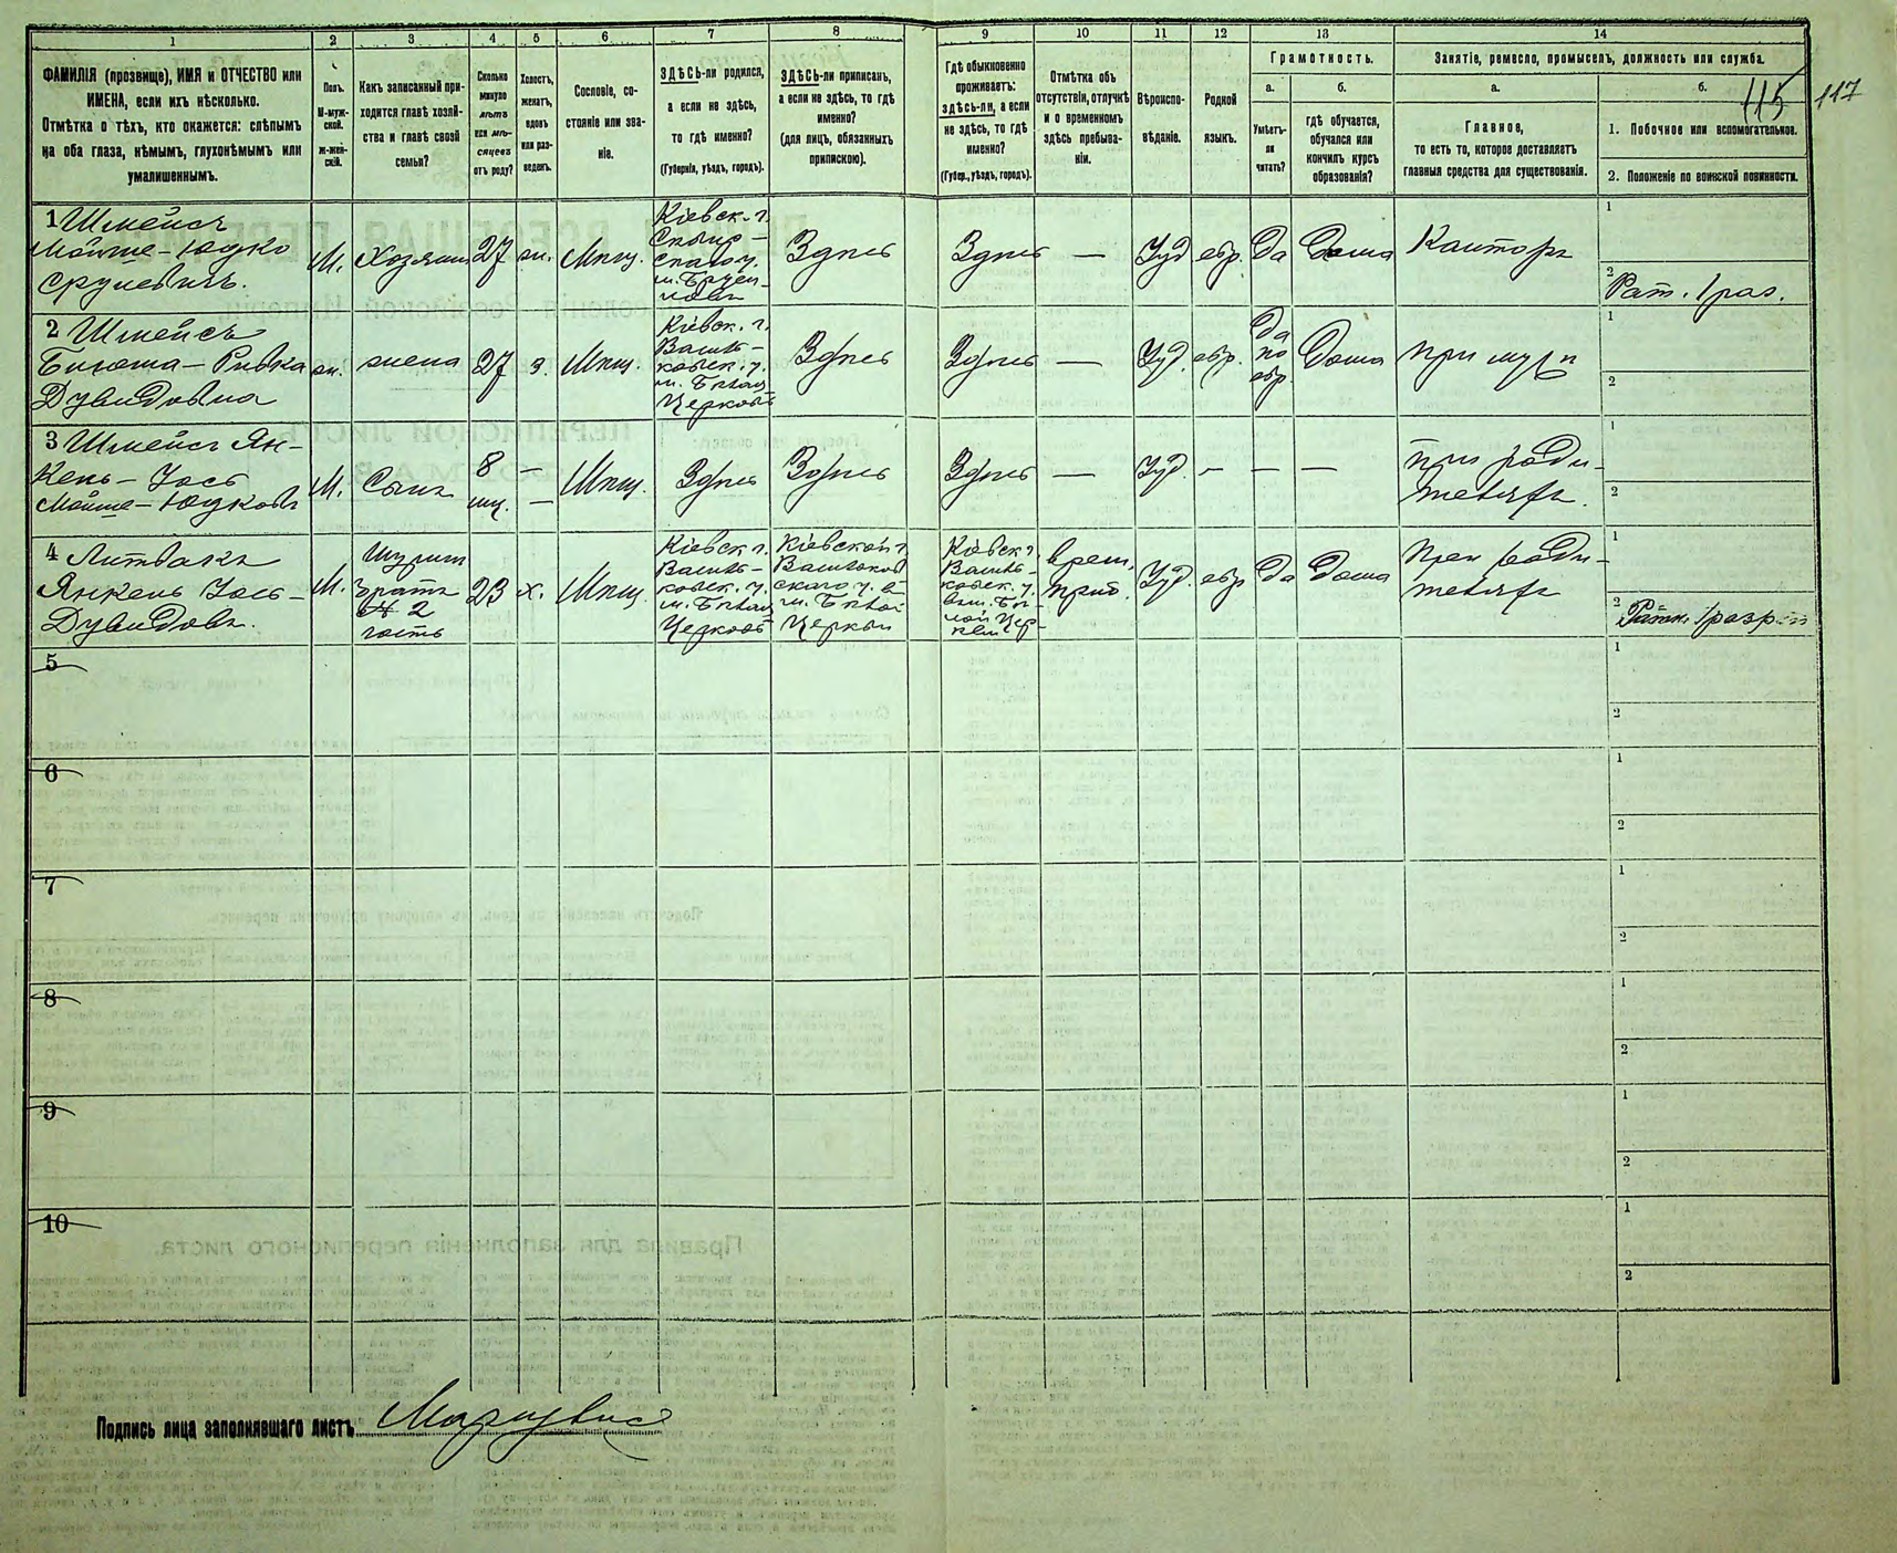 1
2
3
4
5
6
7
8
9
10
11
12
13
14
ФАМИЛІЯ (прозвище), ИМЯ и ОТЧЕСТВО или
ИМЕНА, если ихъ нѣсколько.
Отмѣтка о тѣхъ, кто окажется: слѣпымъ
на оба глаза, нѣмымъ, глухонѣмымъ или
умалишеннымъ.
Полъ.
М-муж-
ской.
Ж-жен-
скій.
Какъ записанный при-
ходится главѣ хозяй-
ства и главѣ своей
семьи?
Сколько
минуло
лѣтъ
или мѣ-
сяцевъ
отъ роду?
Холостъ,
женатъ,
вдовъ
или раз-
веденъ.
Сословіе, со-
стояніе или зва-
ніе.
ЗДѢСЬ-ли родился,
а если не здѣсь,
то гдѣ именно?
(Губернія, уѣздъ, городъ).
ЗДѢСЬ-ли приписанъ,
а если не здѣсь, то гдѣ
именно?
(для лицъ, обязанныхъ
припискою).
Гдѣ обыкновенно
проживаетъ:
здѣсь-ли, а если
не здѣсь, то гдѣ
именно?
(Губер., уѣздъ, городъ).
Отмѣтка объ
отсутствіи, отлучкѣ
и о временномъ
здѣсь пребыва-
ніи.
Вѣроиспо-
вѣданіе.
Родной
языкъ.
Грамотность.
а.
Умѣетъ-
ли
читать?
б.
гдѣ обучается,
обучался или
кончилъ курсъ
образованія?
Занятіе, ремесло, промыселъ, должность или служба.
а.
Главное,
то есть то, которое доставляетъ
главныя средства для существованія.
б.
115
117
1. Побочное или вспомогательное.
2. Положеніе по воинской повинности.
1 Шмейсъ
Мойше-Юдко
Срулевичъ.
М.
Хозяинъ
27
ж.
Мѣщ.
Кіевск. г.
Сквир-
скаго у.
Здѣсь
Здѣсь
—
Іуд
евр.
Да
Дома
Канторъ
1
2
Рат. 1 раз.
2 Шмейсъ
Ривка
Дувидовна
ж.
жена
27
з.
Мѣщ.
Кіевск. г.
Василь-
ковск. у.
м. Бѣлая
Церковь
Здѣсь
Здѣсь
—
Іуд.
евр.
Да
по
евр.
Дома
при мужѣ
1
2
3 Шмейсъ Ян-
кель-Іось
Мойше-Юдковъ
М.
Сынъ
8
мц.
—
—
Мѣщ.
Здѣсь
Здѣсь
Здѣсь
—
Іуд.
—
—
—
при роди-
теляхъ.
1
2
4 Литвакъ
Янкель Іось-
Дувидовъ.
М.
Шурин
братъ
№ 2
гость
23
х.
Мѣщ.
Кіевск г.
Василь-
ковск. у.
м. Бѣлая
Церковь
Кіевской г
Васильков
скаго у. в
м. Бѣлой
Церкви
Кіевск г.
Василь-
ковск. у.
вм. Бѣ-
лой Цер-
кви
врем.
преб.
Іуд.
евр
Да
Дома
При роди-
теляхъ
1
2
Ратн. 1 разр
5
1
2
6
1
2
7
1
2
8
1
2
9
1
2
10
1
2
Подпись лица заполнявшаго листъ